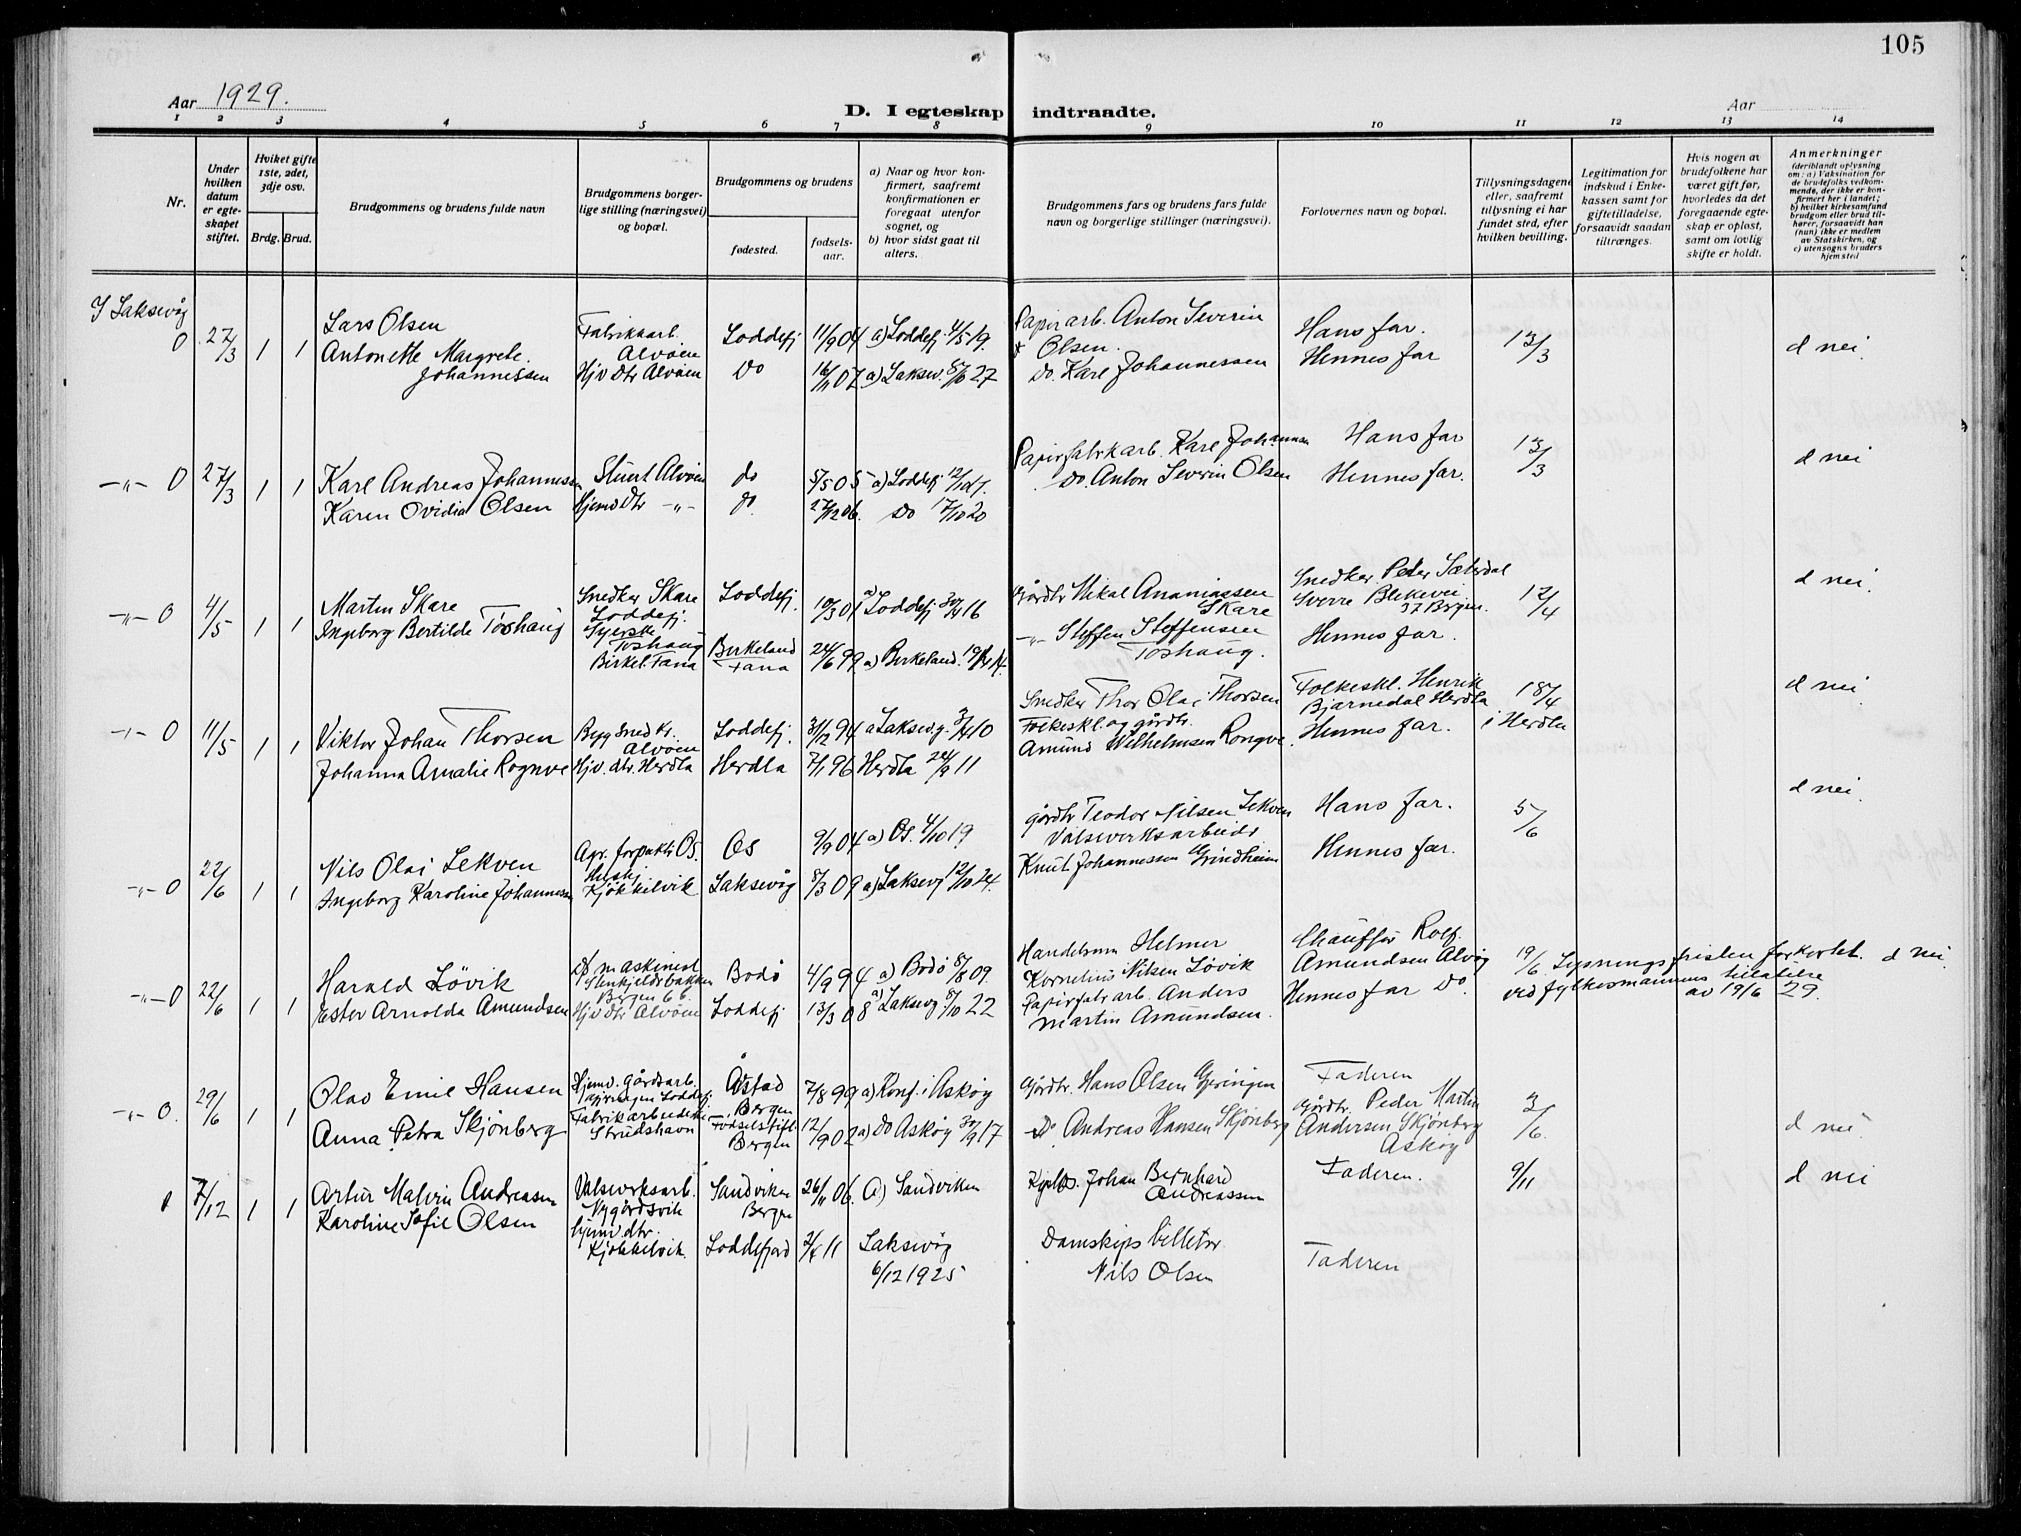 105
Aar 1929.
D. I egteskap indtraadte.
Aar
1 2 3 4 5 6 7 8 9 10 11 12 13 14
Nr.
Under hvilken datum er egteskapet stiftet.
Hviket gifte 1ste, 2det, 3dje osv.
Brdg. Brud.
Brudgommens og brudens fulde navn
Brudgommens borgerlige stilling (næringsvei) og bopæl.
Brudgommens og brudens
fødested.
fødselsaar.
a) Naar og hvor konfirmert, saafremt konfirmationen er foregaat utenfor sognet, og
b) hvor sidst gaat til alters.
Brudgommens fars og brudens fars fulde navn og borgerlige stillinger (næringsvei).
Forlovernes navn og bopæl.
Tillysningsdagene eller, saafremt tillysning ei har fundet sted, efter hvilken bevilling.
Legitimation for indskud i Enkekassen samt for giftetilladelse, forsaavidt saadan tiltrænges.
Hvis nogen av brudefolkene har været gift før, hvorledes da det foregaaende egteskap er opløst, samt om lovlig skifte er holdt.
Anmerkninger (deriblandt oplysning om: a) Vaksination for de brudefolks vedkommende, der ikke er konfirmert her i landet; b) hvilket kirkesamfund brudgom eller brud tilhører, forsaavidt han (hun) ikke er medlem av Statskirken, og c) utensogns bruders hjemsted
I Laksevåg
0 27/3 1 1 Lars Olsen Fabrikkarb. Alvøen Loddefj 11/9 04 a) Loddefj 4/5 19. Papirarb. Anton Severin Olsen. Hans far. 13/3 d nei
Antonette Margrete Johannessen Hjv dtr Alvøen Do 16/11 07 a) Laksev. 5/10 27 Do. Karl Johannessen Hennes far
-"- 0 27/3 1 1 Karl Andreas Johannessen Stuert Alvøen do 5/5 05 a) Loddefj Papirfabrkarb. Karl Johannesen Hans far 13/3 d nei
Karen Ovidia Olsen Hjemv Dtr -"- do 27/12 06. Do 17/10 20 Do. Anton Severin Olsen Hennes far.
-"- 0 4/5 1 1 Martin Skare Snedker Skare Loddefj. Loddefj. 10/3 01 a) Loddefj 30/4 16 Gårdbr Mikal Ananiassen Skare Snedker Peder Sæterdal Sverre Blekevei 37 Bergen. 12/4 d nei.
Ingeborg Bertilde Toshaug Syerske Toshaug Birkel. Fana Birkeland Fana 24/6 99 a) Birkeland. -"- Steffen Steffensen Toshaug. Hennes far.
-"- 0 11/5 1 1 Viktor Johan Thorsen Bygsnedkr. Alvøen Loddefj. 31/12 94 a Laksevg. 3/4 10 Snedker Thor Olai Thorsen Folkeskl. Henrik Bjarnedal Herdla 18/4 i Herdla d nei
Johanna Amalie Rognve Hjv. dtr. Herdla Herdla 7/1 96 Herdla 24/9 11 Folkeskl. og gårdbr. Amund Wilhelmsen Rongve. Hennes far.
-"- 0 22/6 1 1 Nils Olai Lekven Agr. forpaktr Os. Os 9/9 04 a) Os. 4/10 19 gårdbr Teodor Nilsen Lekven Hans far. 5/6 d nei.
Ingeborg Karoline Johannessen Kjøkkelvik Laksevåg 8/3 09 a) Laksevg 12/10 24. Valseverksarbeidr Knut Johannessen Grindheim Hennes far.
-"- 0 22/6 1 1 Harald Løvik Ds maskinist Stenkjeldrbakken Bergen Bodø 4/9 94 a) Bodø 8/8 09. Handelsmn Helmer Kornelius Nilsen Løvik Chauffør Rolf Amundsen Alvøy 19/6 Lysningsfristen forkortet ved fylkesmannens tillatelse av 19/6 29. d nei.
Ester Arnolda Amundsen Hjv dtr Alvøen Loddefj 13/3 08 a) Laksevg 8/10 22 Papirfabrarb. Anders Martin Amundsen. Hennes far Do
-"- 0. 29/6 1 1 Olav Emil Hansen Hjemv. gårdsarb. Loddefj. Årstad Bergen 7/8 99 a) Konf. i Askøy Gårdbr. Hans Olsen Gjeringen Faderen 3/6. d nei.
Anna Petra Skjønberg Fabrikarbeiderske Strudshavn Fødselstift. Bergen 12/9 02 a) Do Askøy 30/9 17 Do. Andreas Hansen Skjønberg Gårdbr. Peder Martin Andersen Skjønberg Askøy
0 7/12 1 1 Artur Malvin Andreassen Valsverksarb. Nygårdsvik Sandviken Bergen 26/11 06. a) Sandviken Johan Bernhard Andreassen Faderen. 9/11 d nei
Karoline Sofie Olsen hjemv. dtr. Kjøkkelvik. Loddefjord 2/4 11 Laksevåg 6/12 1925 Damskips billettør Nils Olsen Faderen